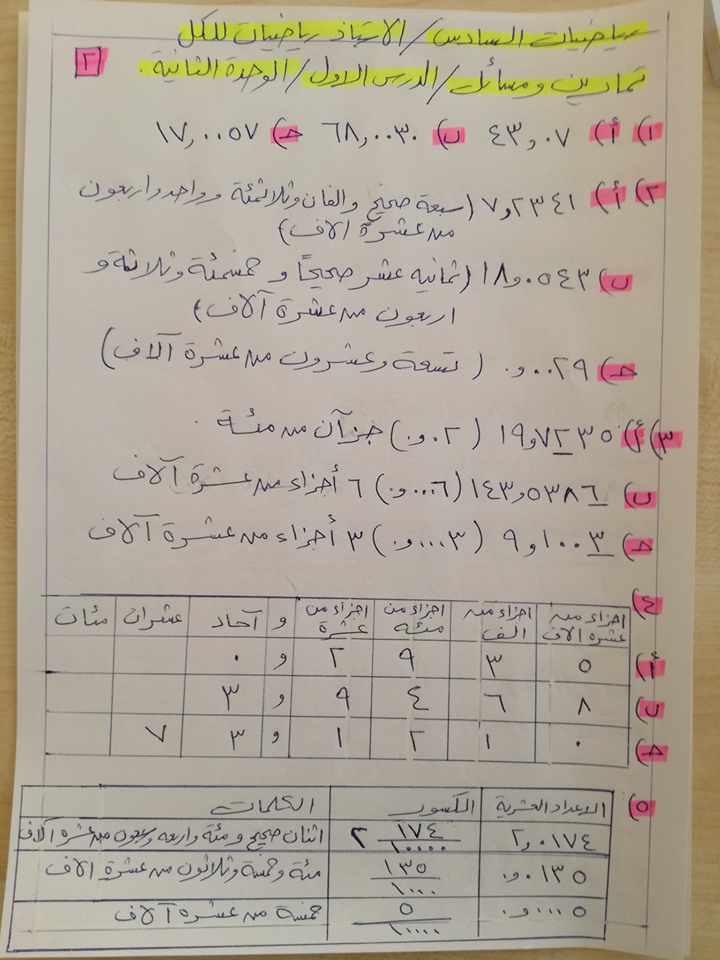 رياضيات السادس / الاستاذ رياضيات للكل
تمارين ومسائل / الدرس الاول / الوحدة الثانية .
٢
١) أ) ٤٣,٠٧ ب) ٦٨,٠٠٣٠ حـ) ١٧,٠٠٥٧
٢) أ) ٧و٢٣٤١ (سبعة صحيح والفان وثلاثمئة وواحد واربعون
من عشرة الاف)
ب) ١٨و٠٥٤٣ (ثمانيه عشر صحيحًا و خمسمئة وثلاثة و
اربعون من عشرة آلاف)
حـ) ٠و٠٠٢٩ ( تسعة وعشرون من عشرة آلاف)
٣) أ) ١٩و٧٢٣٥ (٠و٠٢) جزآن من مئة
ب) ١٤٣و٥٣٨٦ (٠و٠٠٠٦) ٦ أجزاء من عشرة آلاف
حـ) ٩و١٠٠٣ (٠و٠٠٠٣) ٣ أجزاء من عشرة آلاف
٤)
اجزاء من عشرة الاف اجزاء من الف اجزاء من مئه اجزاء من عشرة و آحاد عشرات مئات
أ) ٥ ٣ ٩ ٢ و ٠
ب) ٨ ٦ ٤ ٩ و ٣
حـ) ٠ ١ ٢ ١ و ٣ ٧
٥)
الاعداد العشرية الكسور الكلمات
٢و٠١٧٤ ٢ ١٧٤/١٠٠٠٠ اثنان صحيح و مئة واربعه وسبعون من عشرة آلاف
٠و٠١٣٥ ١٣٥/١٠٠٠٠ مئة وخمسة وثلاثون من عشرة الاف
٠و٠٠٠٥ ٥/١٠٠٠٠ خمسة من عشرة آلاف